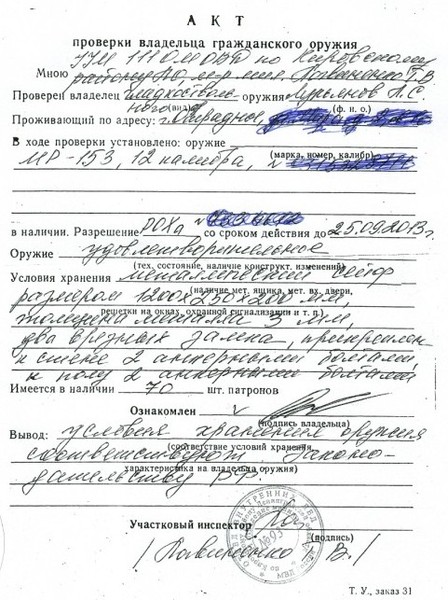 А К Т
проверки владельца гражданского оружия
УУМ 111 ОМ ОВД по Кировскому
Мною району, м-р мил. Павленко Т.В.
Проверен владец гладкоствольного оружия Лукьянов А.С.
(вид) (ф. и. о.)
Проживающий по адресу: г. Отрадное,
В ходе проверки установлено: оружие
МР-153, 12 калибра, №
(марка, номер, калибр)
в наличии. Разрешение РОХа № со сроком действия до 25.09.2013г.
Оружие удовлетворительное
(тех. состояние, наличие конструкт. изменений)
Условия хранения металлический сейф
(наличие мет. ящика, мет. вх. двери,
размером 1200х250х200 мм,
решетки на окнах, охранной сигнализации и т. п.)
толщина металла 3 мм,
два врезных замка, прикреплен
к стене 2 анкерными болтами,
к полу 2 анкерными болтами
Имеется в наличии 70 шт. патронов
Ознакомлен v
(подпись владельца)
Вывод: условия хранения оружия
(соответствие условий хранения,
соответствуют законо-
характеристика на владельца оружия)
дательству РФ.
Участковый инспектор
№ 93
Т. У., заказ 31